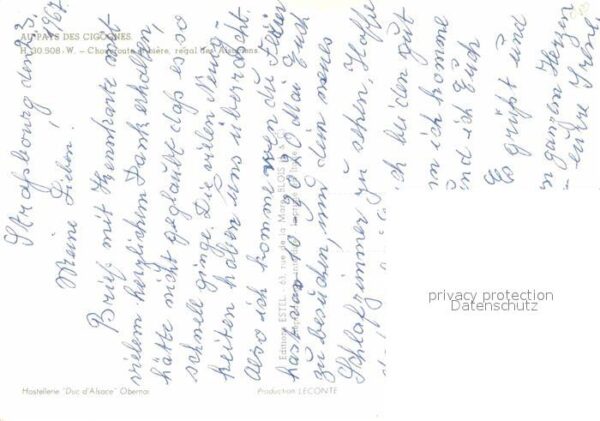 AU PAYS DES CIGOGNES
H. 30.508-W. - Choucroute et bière, régal des Alsaciens
Strassbourg den 3.
1967.
Meine Lieben!
Brief mit Themkarte mit
vielem herzlichem Dank erhalten,
hätte nicht geglaubt dass es so
schnell ginge. Die vielen Neuig-
keiten haben uns überrascht.
Also ich komme wen du Ferien
hast von 10 20 Mai Euch
zu besuchen, und dein neues
Schlafzimmer zu sehen, Hoffe
ich bei den gut
ich komme
und ich Euch
Es grüsst und
ganzem Herzen
eure Irene
Editions ESTEL - 61, rue de la Marne BLOIS
Hostellerie "Duc d'Alsace" Obernai
Production LECONTE
privacy protection
Datenschutz